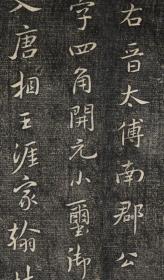 右晉太傅南郡公
字四角開元小璽御
入唐王涯家翰